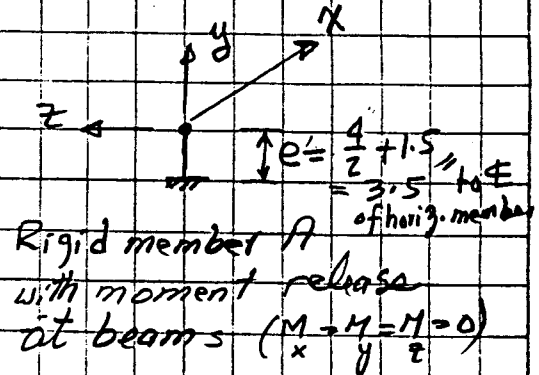 y
x
z
e' = 4/2 + 1.5
= 3.5" to ℄
of horiz. member
Rigid member A
with moment release
at beams (Mx = My = Mz = 0)